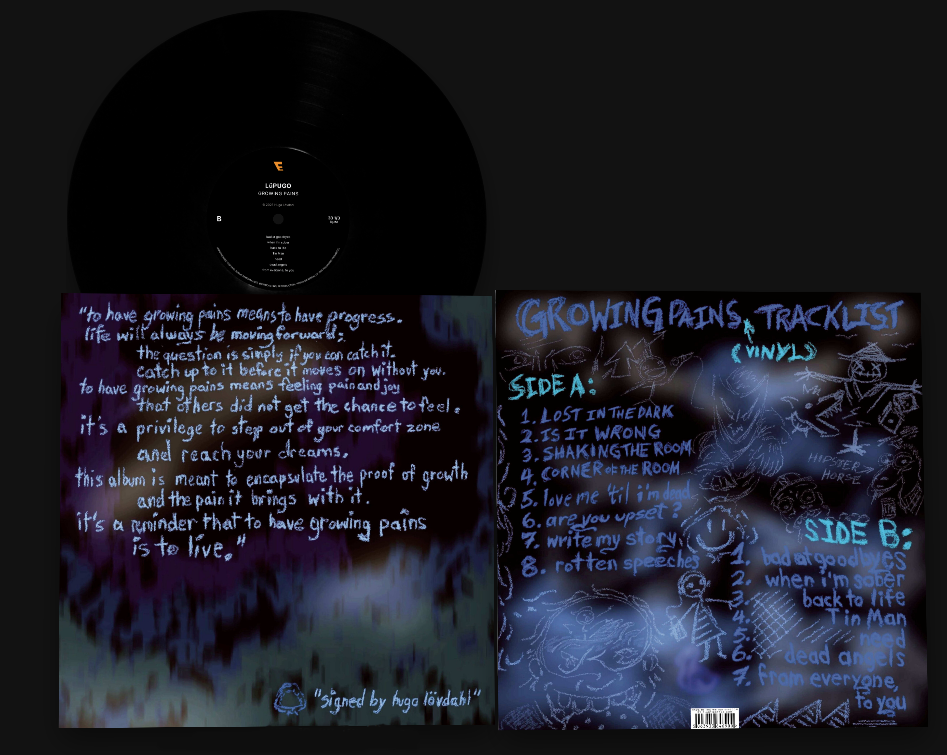 LüPUGO
GROWING PAINS
B
bad at goodbyes
when i'm sober
back to life
Tin Man
need
dead angels
from everyone, to you
"to have growing pains means to have progress.
life will always be moving forward;
the question is simply if you can catch it.
catch up to it before it moves on without you.
to have growing pains means feeling pain and joy
that others did not get the chance to feel.
it's a privilege to step out of your comfort zone
and reach your dreams.
this album is meant to encapsulate the proof of growth
and the pain it brings with it.
it's a reminder that to have growing pains
is to live."
"signed by hugo lövdahl"
GROWING PAINS, TRACKLIST
(VINYL)
SIDE A:
1. LOST IN THE DARK
2. IS IT WRONG
3. SHAKING THE ROOM
4. CORNER OF THE ROOM
5. love me 'til i'm dead
6. are you upset?
7. write my story
8. rotten speeches
HIPSTER
HORSE
SIDE B:
1. bad at goodbyes
2. when i'm sober
3. back to life
4. Tin Man
5. need
6. dead angels
7. from everyone,
to you